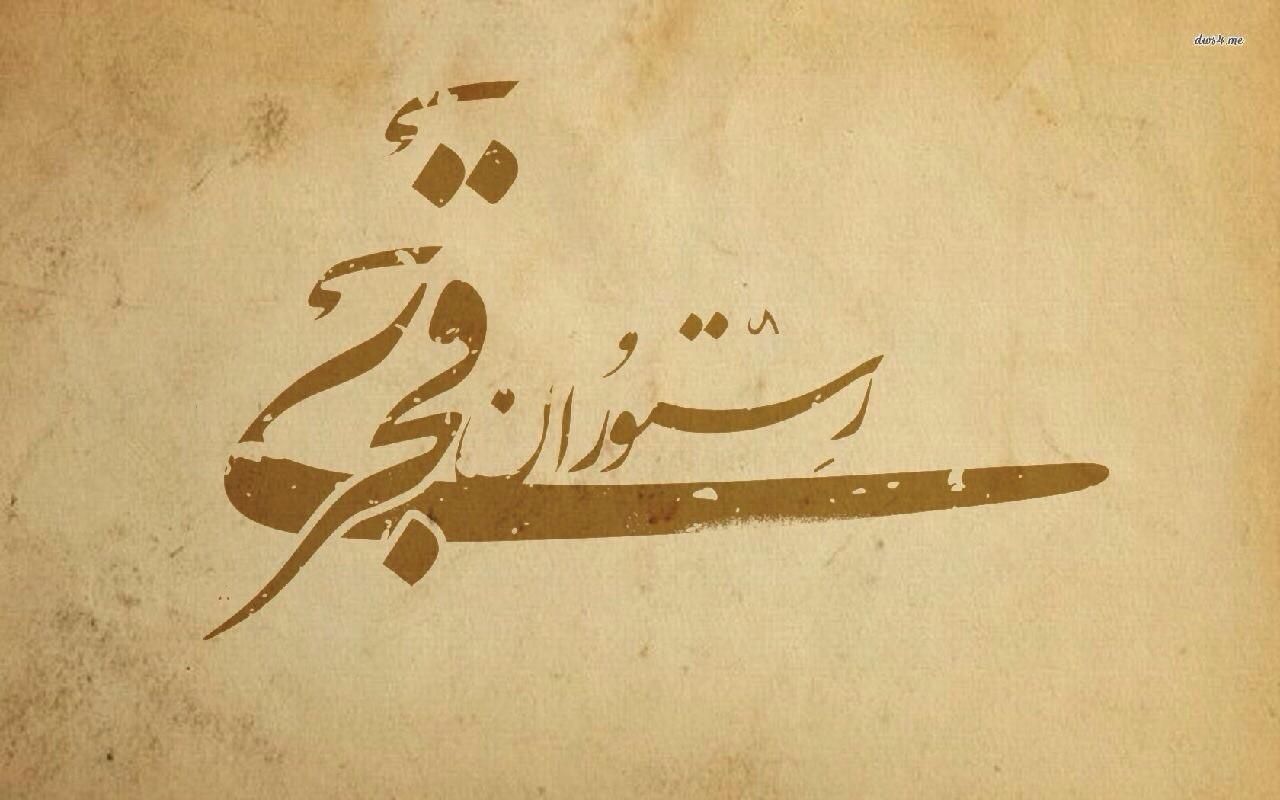 dws4.me
رِستُوران
قجری